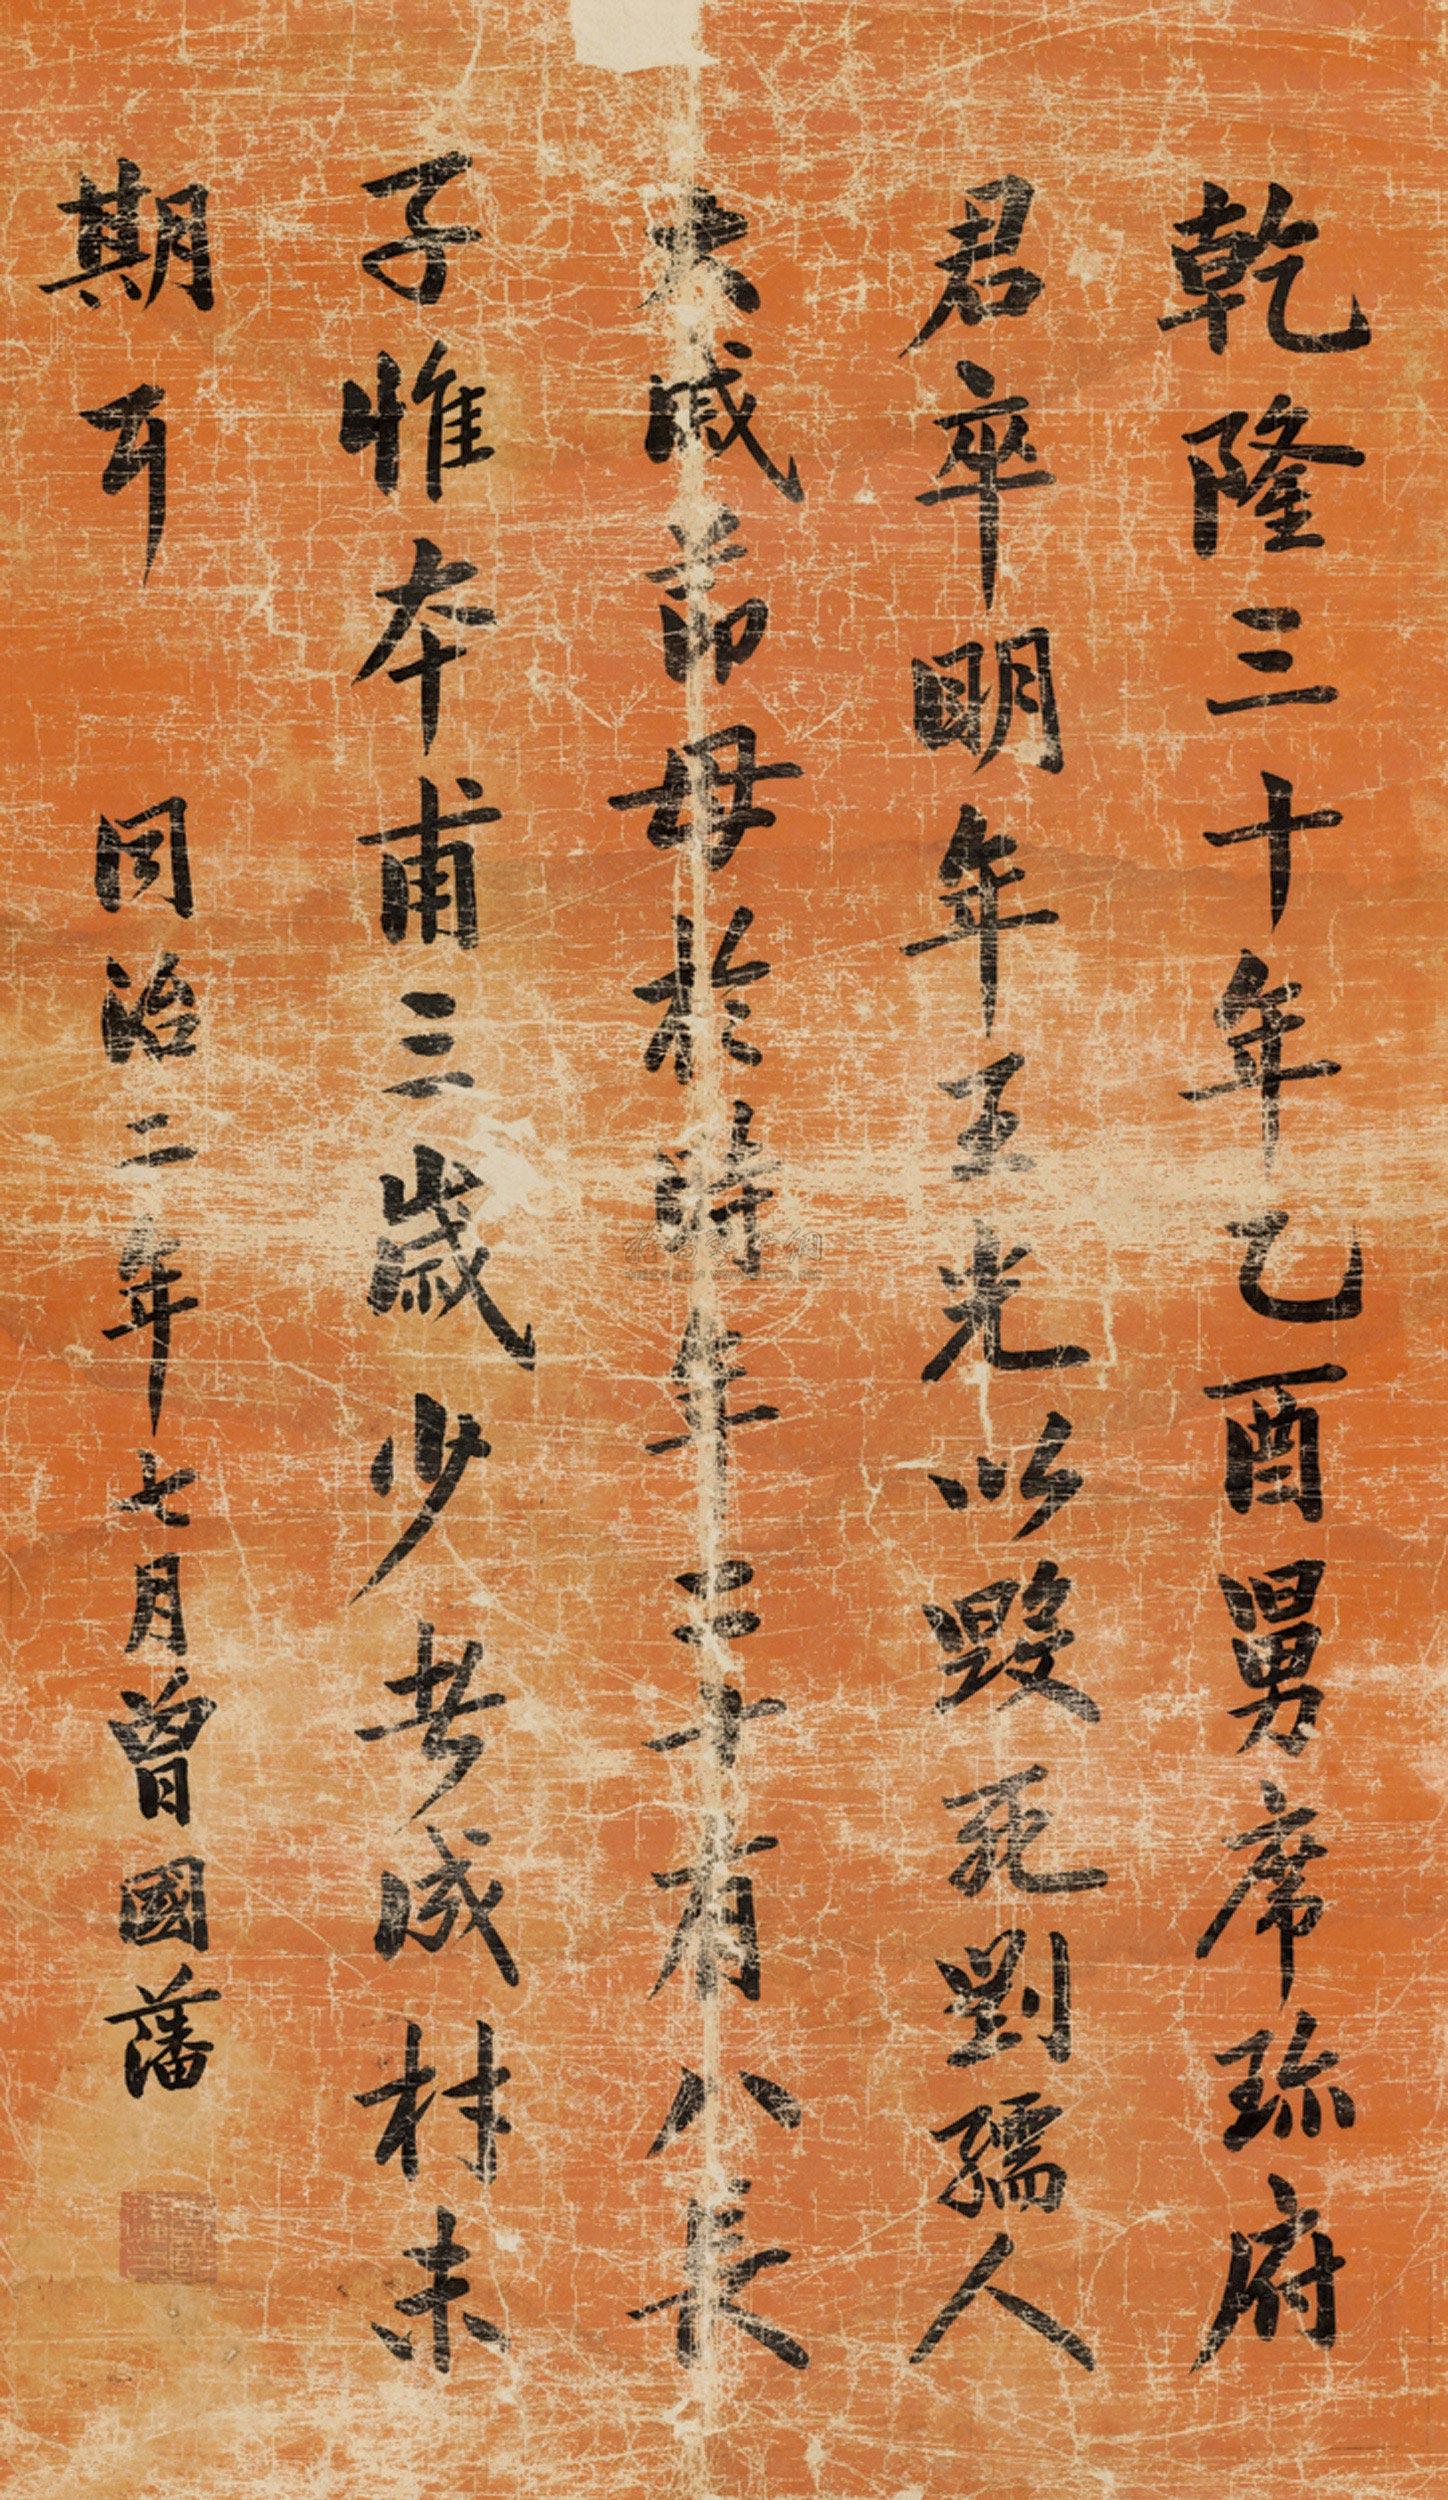 乾隆三十年乙酉舅席珎府
君卒明年王光以毀死劉孺人
大戚節母於時年三十有八長
子惟本甫三歲少者成材未
期耳
同治二年七月曾國藩